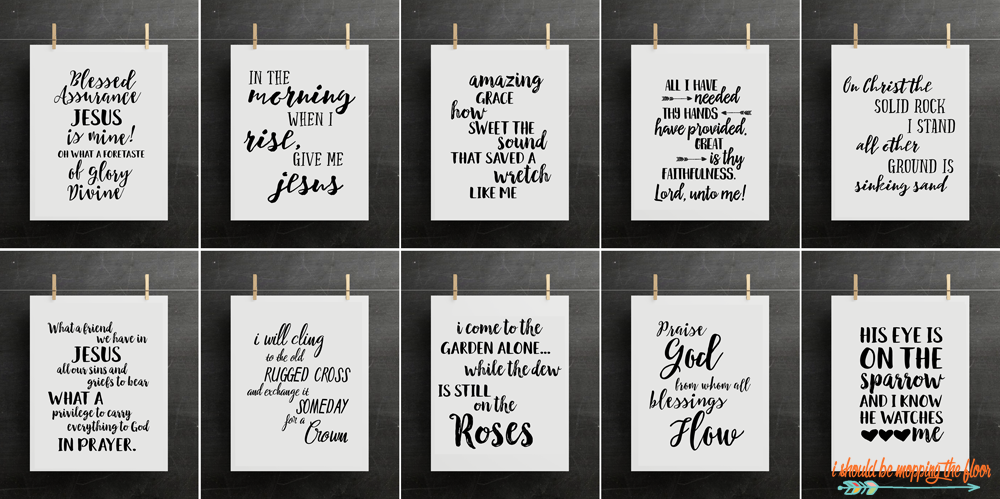 Blessed
Assurance
JESUS
is mine!
OH WHAT A FORETASTE
of glory
Divine
IN THE
morning
WHEN I
rise,
GIVE ME
jesus
amazing
GRACE
how
SWEET THE
sound
THAT SAVED A
wretch
LIKE ME
ALL I HAVE
needed
THY HANDS
have provided.
GREAT
is thy
FAITHFULNESS.
Lord, unto me!
On Christ the
SOLID ROCK
I STAND
all other
GROUND IS
sinking sand
What a friend
we have in
JESUS
all our sins and
griefs to bear
WHAT A
privilege to carry
everything to God
IN PRAYER.
i will cling
to the old
RUGGED CROSS
and exchange it
SOMEDAY
for a
Crown
i come to the
GARDEN ALONE...
while the dew
IS STILL
on the
Roses
Praise
God
from whom all
blessings
Flow
HIS EYE IS
ON THE
sparrow
AND I KNOW
HE WATCHES
me
i should be mopping the floor